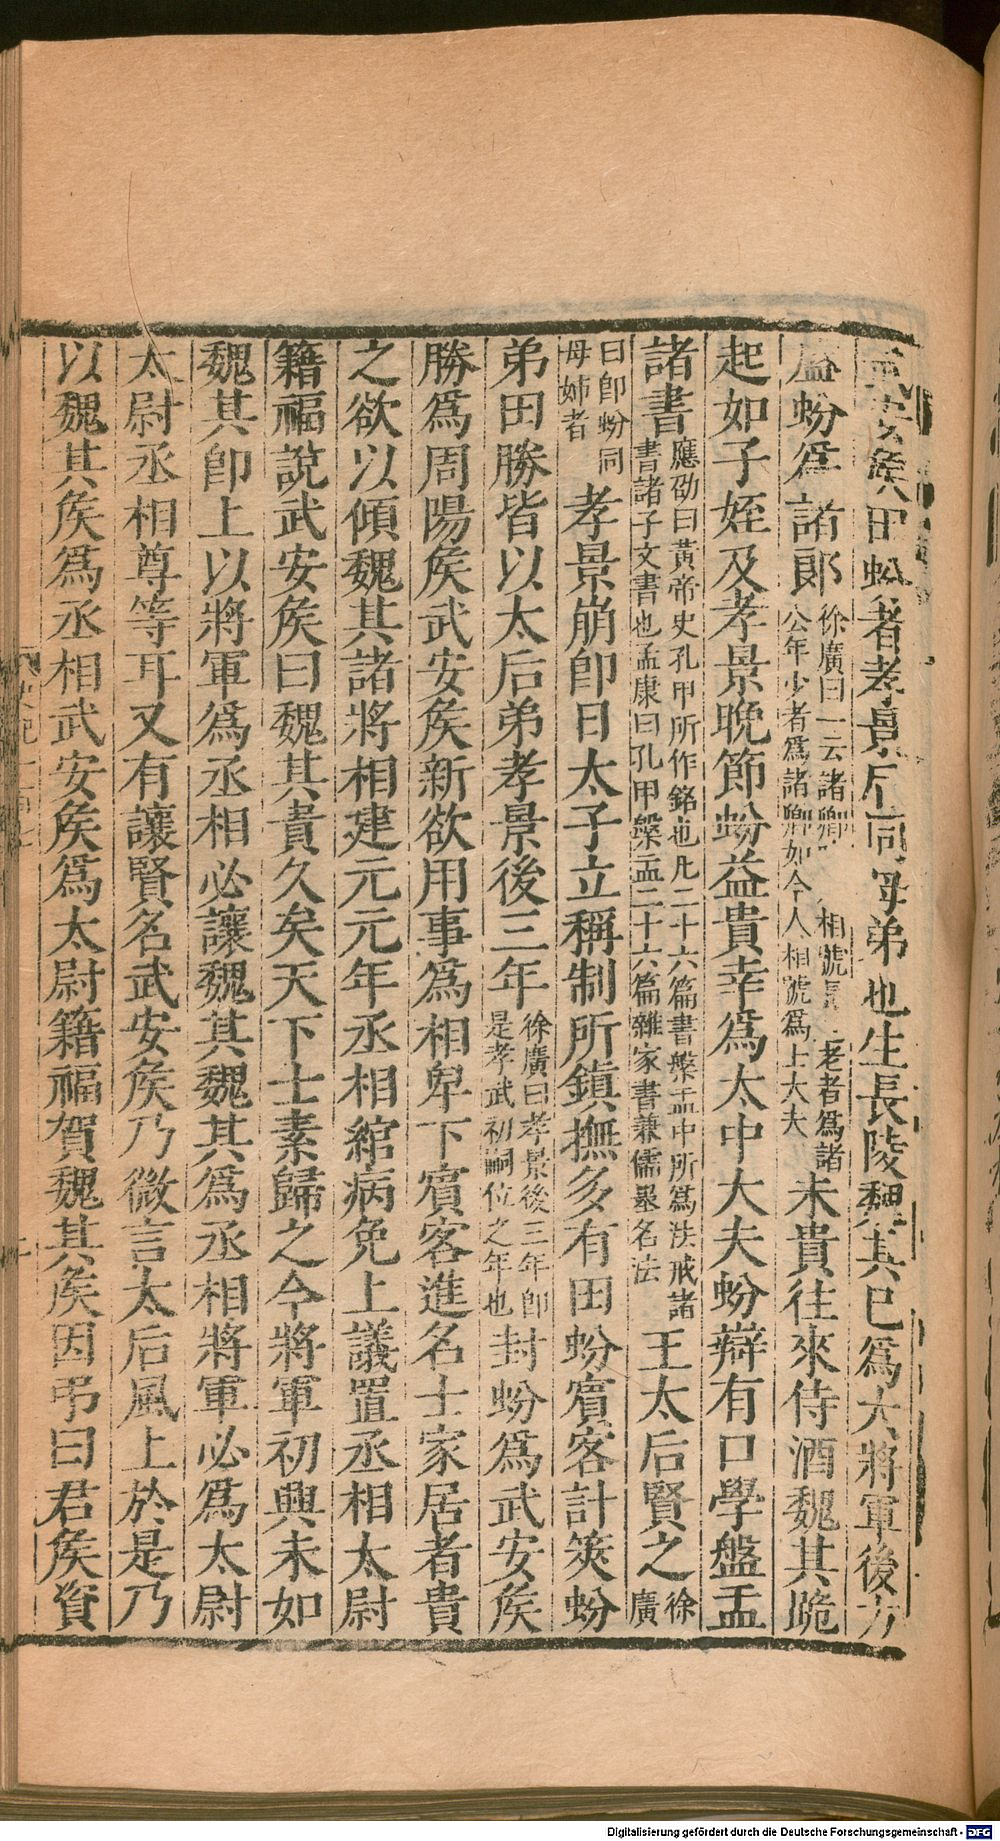 武安矦田蚡者孝景后同母弟也生長陵魏其已爲大將軍後方
盛蚡爲諸郎徐廣曰一云諸卿 相號長老者爲諸公年少者爲諸卿如今人相號爲士大夫未貴往來侍酒魏其跪
起如子姪及孝景晚節蚡益貴幸爲太中大夫蚡辯有口學盤盂
諸書應劭曰黃帝史孔甲所作銘也凡二十六篇書槃盂中所爲法戒諸書諸子文書也孟康曰孔甲槃盂二十六篇雜家書兼儒墨名法王太后賢之徐廣
曰卽蚡同母姉者孝景崩卽日太子立稱制所鎮撫多有田蚡賓客計筴蚡
弟田勝皆以太后弟孝景後三年徐廣曰孝景後三年卽是孝武初嗣位之年也封蚡爲武安矦
勝爲周陽矦武安矦新欲用事爲相卑下賓客進名士家居者貴
之欲以傾魏其諸將相建元元年丞相綰病免上議置丞相太尉
籍福說武安矦曰魏其貴久矣天下士素歸之今將軍初興未如
魏其卽上以將軍爲丞相必讓魏其魏其爲丞相將軍必爲太尉
太尉丞相尊等耳又有讓賢名武安矦乃微言太后風上於是乃
以魏其矦爲丞相武安矦爲太尉籍福賀魏其矦因弔曰君矦資
Digitalisierung gefördert durch die Deutsche Forschungsgemeinschaft - DFG